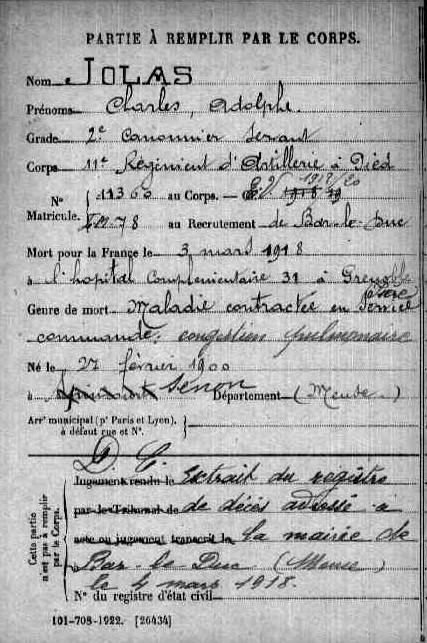 PARTIE À REMPLIR PAR LE CORPS.
Nom JOLAS
Prénoms Charles, Adolphe.
Grade 2e Canonnier Servant
Corps 11e Régiment d'Artillerie à Pied
N° Matricule. { 11360 au Corps. — Cl 1918 19 1918/20
1278 au Recrutement de Bar-le-Duc
Mort pour la France le 3 mars 1918
à l'hopital Complémentaire 31 à Grenoble
Isère
Genre de mort Maladie contractée en Service
commandé: congestion pulmonaire
Né le 27 février 1900
à Senon Département (Meuse.)
Arrt municipal (pr Paris et Lyon), à défaut rue et N°. }
D. C.
Cette partie n'est pas à remplir par le Corps.
Jugement rendu le Extrait du registre
par le Tribunal de de décès adressé à
acte ou jugement transcrit le la mairie de
à Bar-le-Duc (Meuse)
le 4 mars 1918.
N° du registre d'état civil
101-708-1922. [26434]